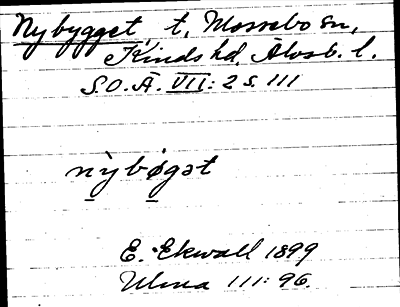 Nybygget, t. Mossebo sn,
Kinds hd. Älvsb. l.
S.O.Ä. VII: 2 s. 111
nỳbøgət
E. Ekwall 1899
Ulma 111: 96.